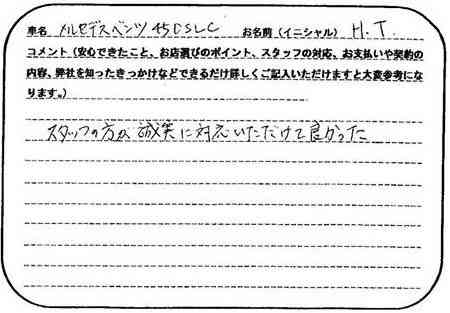 車名 メルセデスベンツ 450SLC お名前(イニシャル) H.T.
コメント(安心できたこと、お店選びのポイント、スタッフの対応、お支払いや契約の
内容、弊社を知ったきっかけなどできるだけ詳しくご記入いただけますと大変参考にな
ります。)
スタッフの方が、誠実に対応いただけて良かった